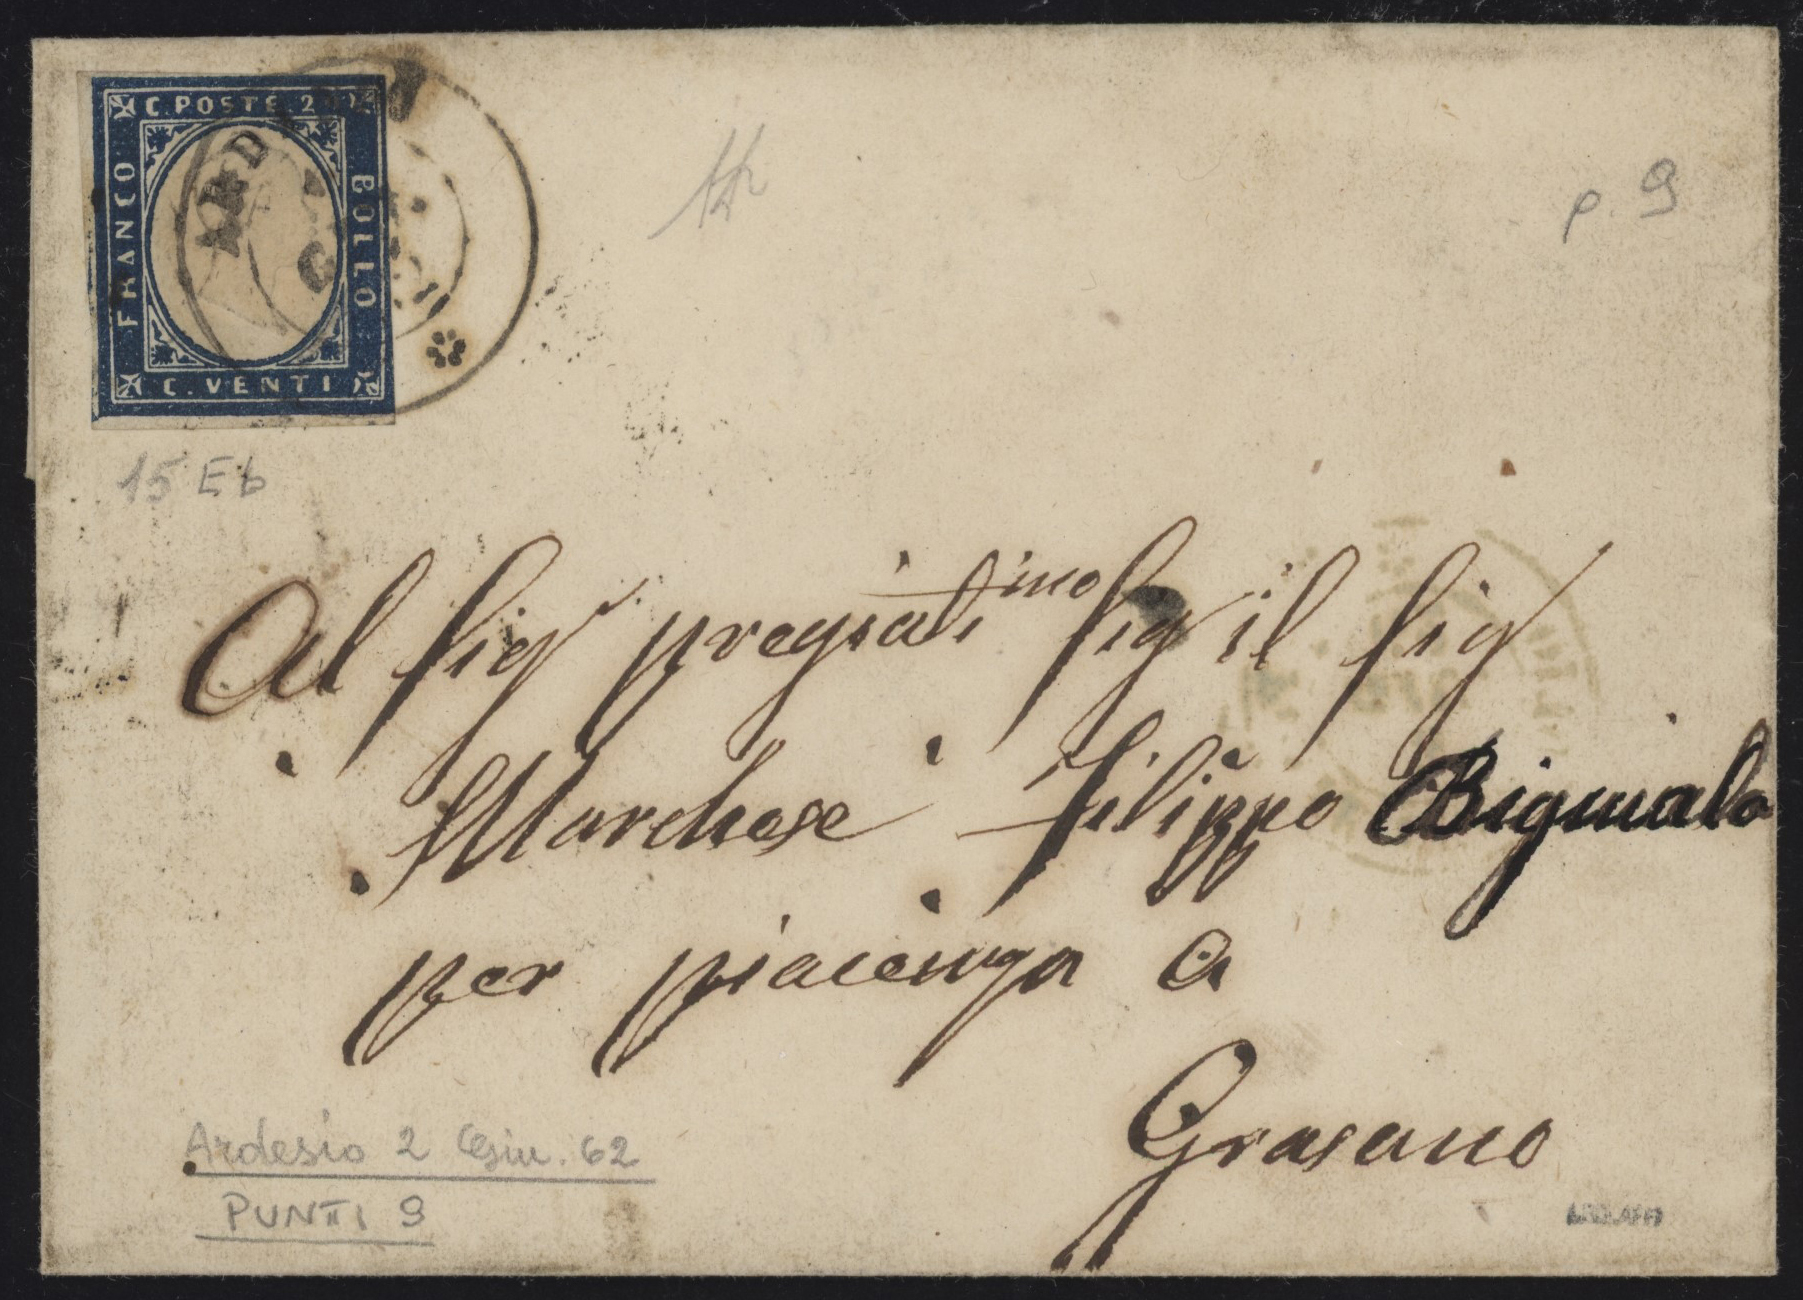 C. POSTE 20
FRANCO
BOLLO
C. VENTI
ARD
p. 9
15 Eb
Al Sigr pregiatimo Sig il Sig
Marchese Filippo
per piacenza a
Grasano
Ardesio 2 Giu. 62
PUNTI 9